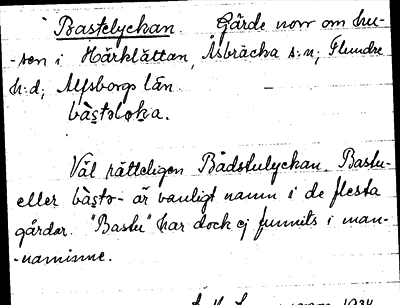 Bastelyckan. Gärde norr om hu-
-sen i Härklättan, Åsbräcka s:n, Flundre
h:d, Älfsborgs län.
bàstəloka.
Väl rätteligen Bådstulyckan. Bastu-
eller bàstə- är vanligt namn i de flesta
gårdar. "Bastu" har dock ej funnits i man-
-naminne.
1934